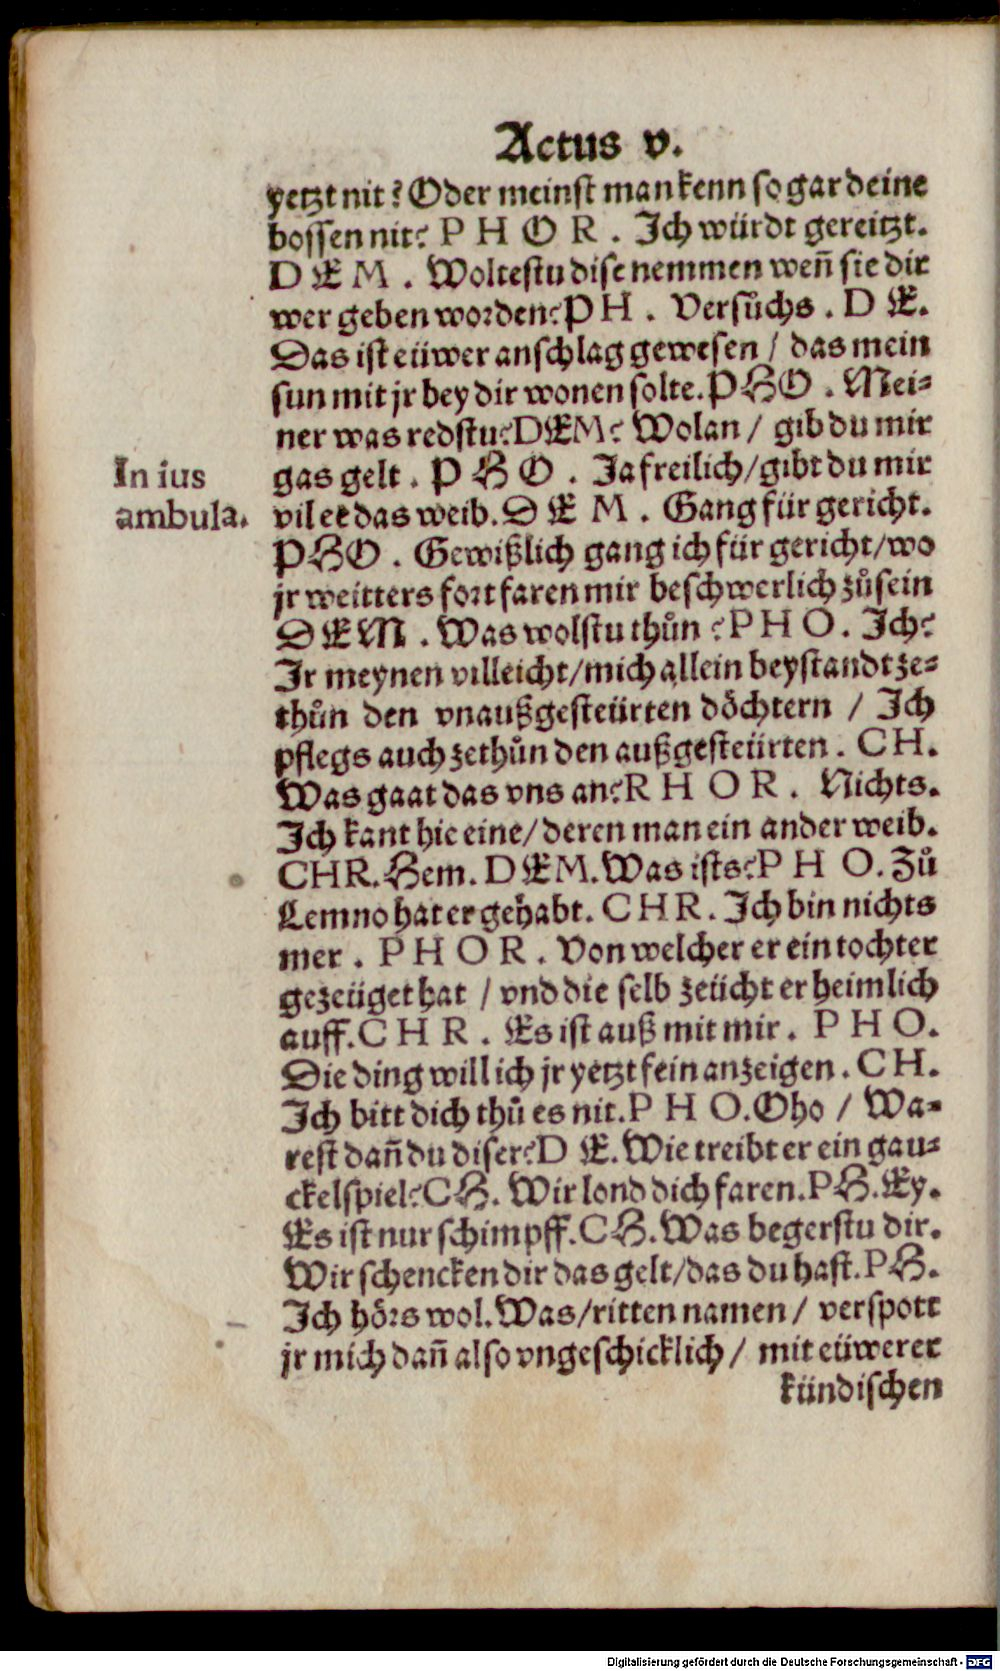 Actus v.
yetzt nit? Oder meinst man kenn so gar deine
bossen nit? P H O R . Ich würdt gereitzt.
D E M . Woltestu dise nemmen weñ sie dir
wer geben worden? P H . Versůchs . D E.
Das ist eüwer anschlag gewesen / das mein
sun mit jr bey dir wonen solte. PHO . Mei-
ner was redstu? DEM? Wolan / gib du mir
In ius
ambula.
gas gelt . P H O . Ja freilich/gibt du mir
vil eẽ das weib. D E M . Gang für gericht.
PHO . Gewißlich gang ich für gericht/wo
jr weitters fort faren mir beschwerlich zůsein
D E M . Was wolstu thůn ? P H O . Ich?
Ir meynen villeicht/mich allein beystandt ze-
thůn den vnaußgesteürten döchtern / Ich
pflegs auch zethůn den außgesteürten . CH.
Was gaat das vns an? R H O R . Nichts.
Ich kant hie eine/deren man ein ander weib.
CHR. Hem. D E M. Was ists? P H O. Zů
Lemno hat er gehabt. C H R . Ich bin nichts
mer . P H O R . Von welcher er ein tochter
gezeüget hat / vnd die selb zeücht er heimlich
auff. C H R . Es ist auß mit mir . P H O.
Die ding will ich jr yetzt fein anzeigen . C H.
Ich bitt dich thů es nit. P H O. Oho / Wa-
rest dañ du diser? D E. Wie treibt er ein gau-
ckelspiel? CH. Wir lond dich faren. PH. Ey.
Es ist nur schimpff. CH. Was begerstu dir.
Wir schencken dir das gelt/das du hast. PH.
Ich hörs wol. Was/ritten namen / verspott
jr mich dañ also vngeschicklich / mit eüwerer
kündischen
Digitalisierung gefördert durch die Deutsche Forschungsgemeinschaft - DFG